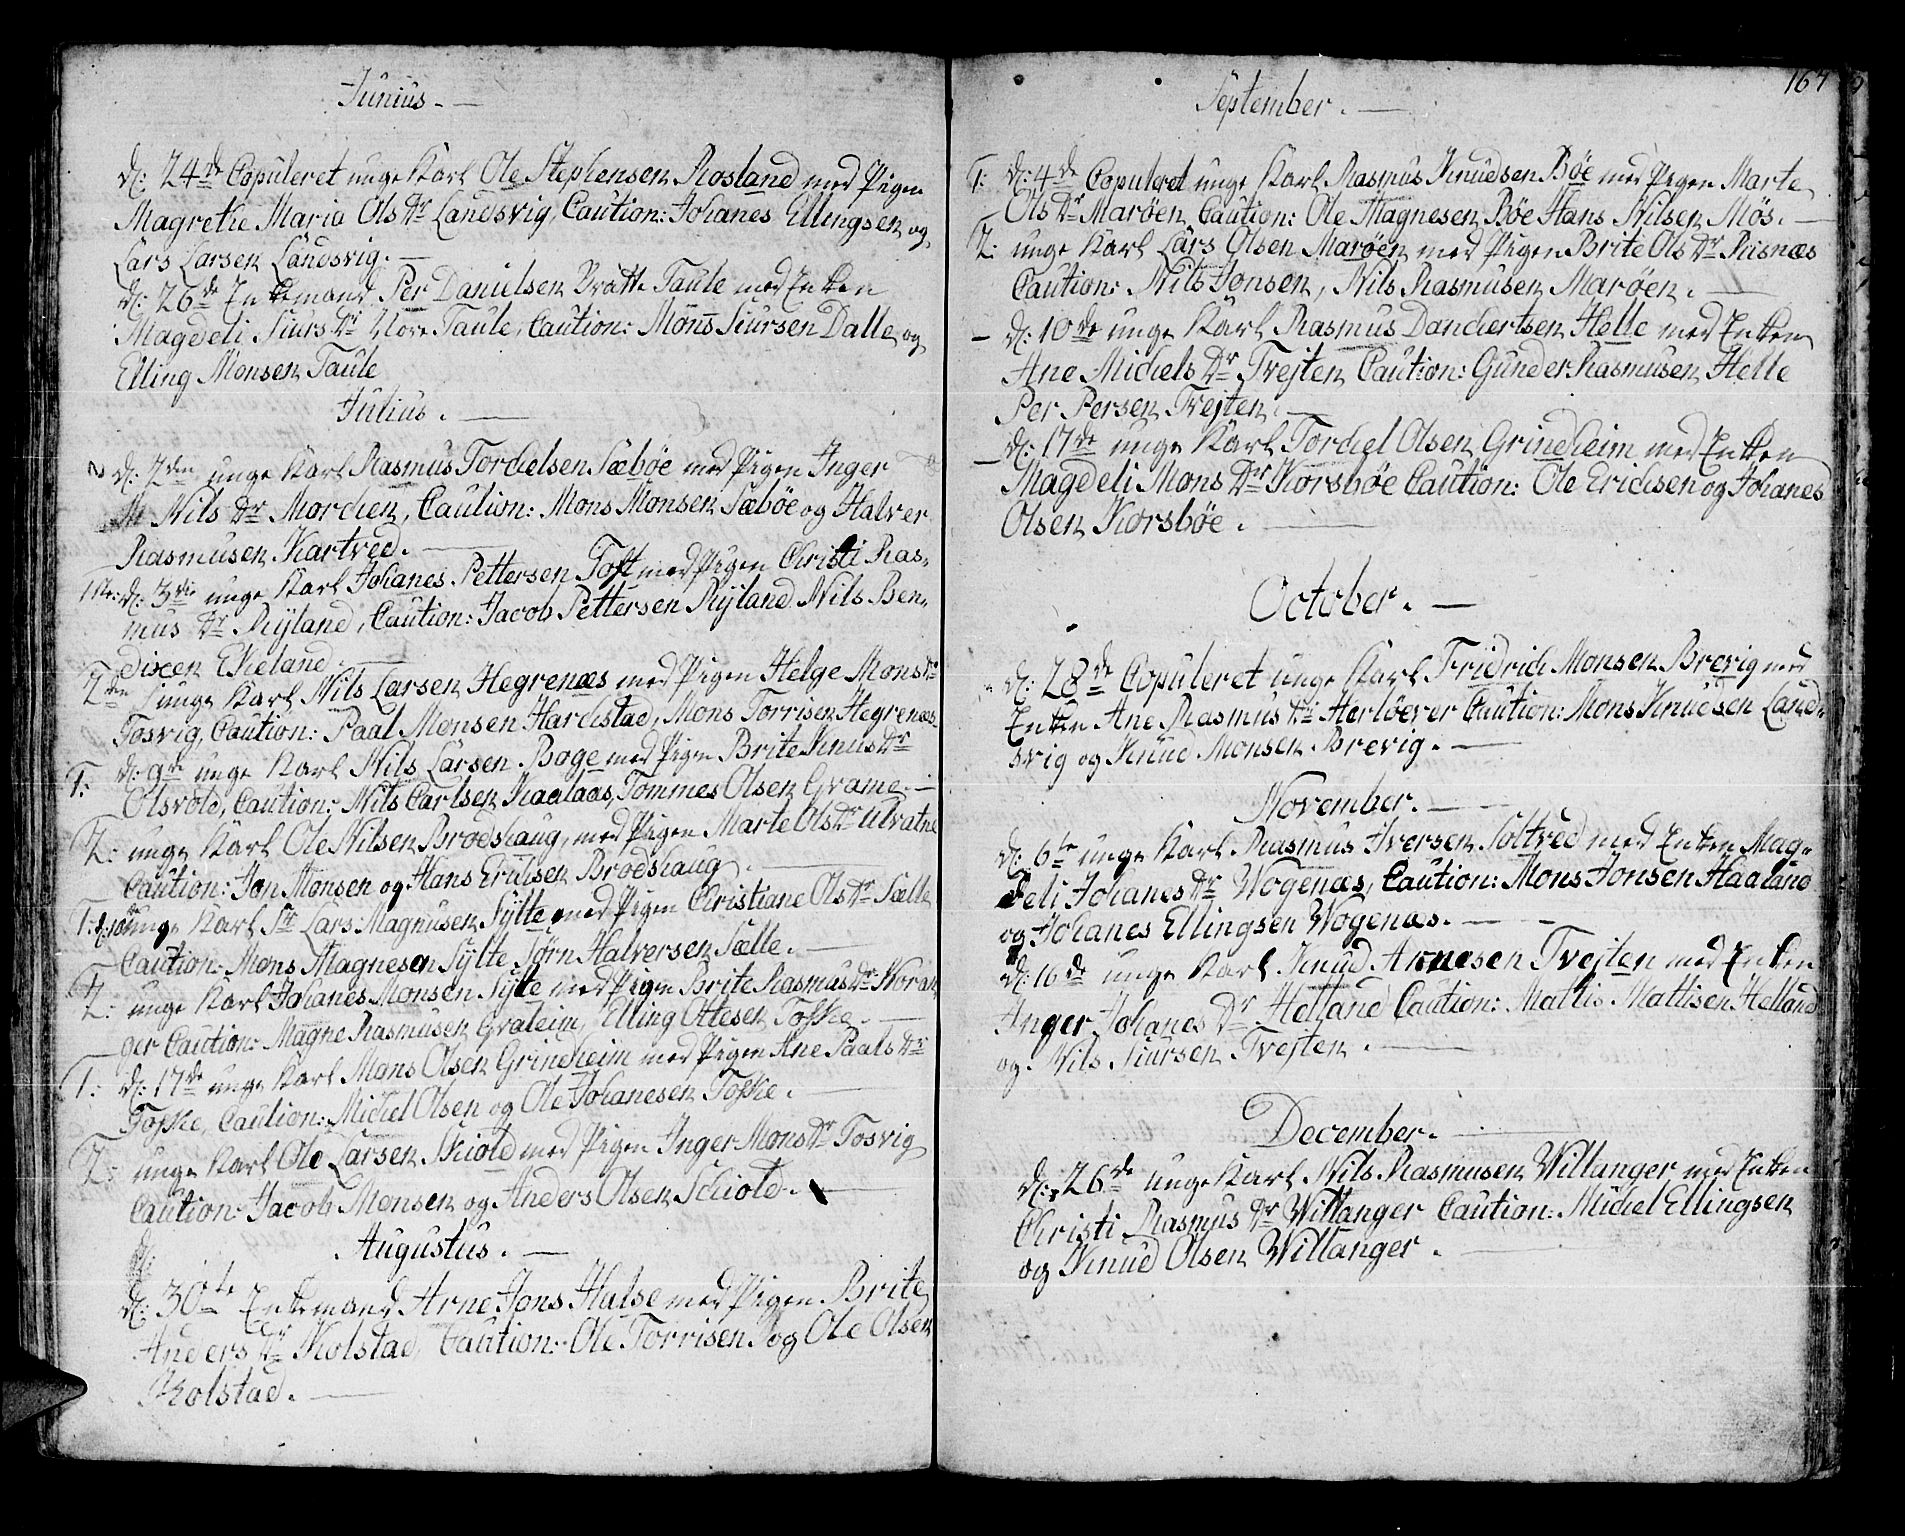 Junius. —
d: 24de Copuleret unge Karl Ole Stephensen Rosland med Pigen
Magrethe Maria Ols Dr Landsvig, Caution: Johanes Ellingsen og
Lars Larsen Landsvig. —
d: 26de Enkemand Per Danielsen Taule med Enken
Magdeli Siurs Dr Taule, Caution: Mons Siursen Dalle og
Elling Monsen Taule
Julius. —
d: 2den unge Karl Rasmus Torchelsen Sæbøe med Pigen Inger
Nils Dr Morchen, Caution: Mons Monsen Sæbøe og Halver
Rasmusen Kartved. —
1ste: d: 3die unge Karl Johanes Pettersen Toft med Pigen Christi Ras-
mus Dr Rÿland, Caution: Jacob Pettersen Rÿland Nils Ben-
dixen Ekeland. —
2den unge Karl Nils Larsen Hegrenæs med Pigen Helge Mons Dr
Fosvig, Caution: Paal Monsen Harchestad, Mons Torrisen Hegrenæs
1: d: 9de unge Karl Nils Larsen Boge med Pigen Brite Knus Dr
Olsvold, Caution: Nils Carlsen Kaalaas, Tommes Olsen Grame. —
2: unge Karl Ole Nilsen Brodshaug, med Pigen Marte Ols Dr Ulvatne
Caution: Jon Monsen og Hans Erichsen Brodshaug. —
1: d: 10de unge Karl Lars Magnusen Sÿlte med Pigen Christiane Ols Dr Sælle
Caution: Mons Magnesen Sÿlte Jørn Halversen Sælle. —
2: unge Karl Johanes Monsen Sÿlte med Pigen Brite Rasmus Dr Noran
ger Caution: Magne Rasmusen Graleim, Elling Ottesen Foske. —
1: d: 17de unge Karl Mons Olsen Grindheim med Pigen Ane Paals Dr
Foske, Caution: Michel Olsen og Ole Johanesen Foske. —
2: unge Karl Ole Larsen Skiold med Pigen Inger Mons Dr Fosvig
Caution: Jacob Monsen og Anders Olsen Schiold. —
Augustus. —
d: 30te Enkemand Arne Jons Halse med Pigen Brite
Anders Dr Kolstad, Caution: Ole Torrisen og Ole Olsen
Kolstad. —
167
September. —
1: d: 4de Copuleret unge Karl Rasmus Knudsen Bøe med Pigen Marte
Ols Dr Marøen Caution: Ole Magnesen Bøe Hans Nilsen Møs. —
2: unge Karl Lars Olsen Marøen med Pigen Brite Ols Dr Risnæs
Caution: Nils Jonsen, Nils Rasmusen Marøen. —
— d: 10de unge Karl Rasmus Danchertsen Helle med Enken
Ane Michels Dr Tvejten Caution: Gunder Rasmusen Helle
Per Persen Tvejten. —
— d: 17de unge Karl Torchel Olsen Grindheim med Enken
Magdeli Mons Dr Korsbøe Caution: Ole Erichsen og Johanes
Olsen Korsbøe. —
October. —
d: 28de Copuleret unge Karl Fridrich Monsen Brevig med
Enken Ane Rasmus Dr Herløever Caution: Mons Knudsen Land-
svig og Knud Monsen Brevig. —
November. —
d: 6te unge Karl Rasmus Iversen Soltved med Enken Mag-
deli Johanes Dr Wogenæs, Caution: Mons Jonsen Haaland
og Johanes Ellingsen Wogenæs. —
d: 16de unge Karl Knud Arnesen Tvejten med Enken
Anger Johanes Dr Helland Caution: Mattis Mattisen Helland
og Nils Siursen Tvejten. —
December. —
d: 26de unge Karl Nils Rasmusen Willanger med Enken
Christi Rasmus Dr Willanger Caution: Michel Ellingsen
og Knud Olsen Willanger. —